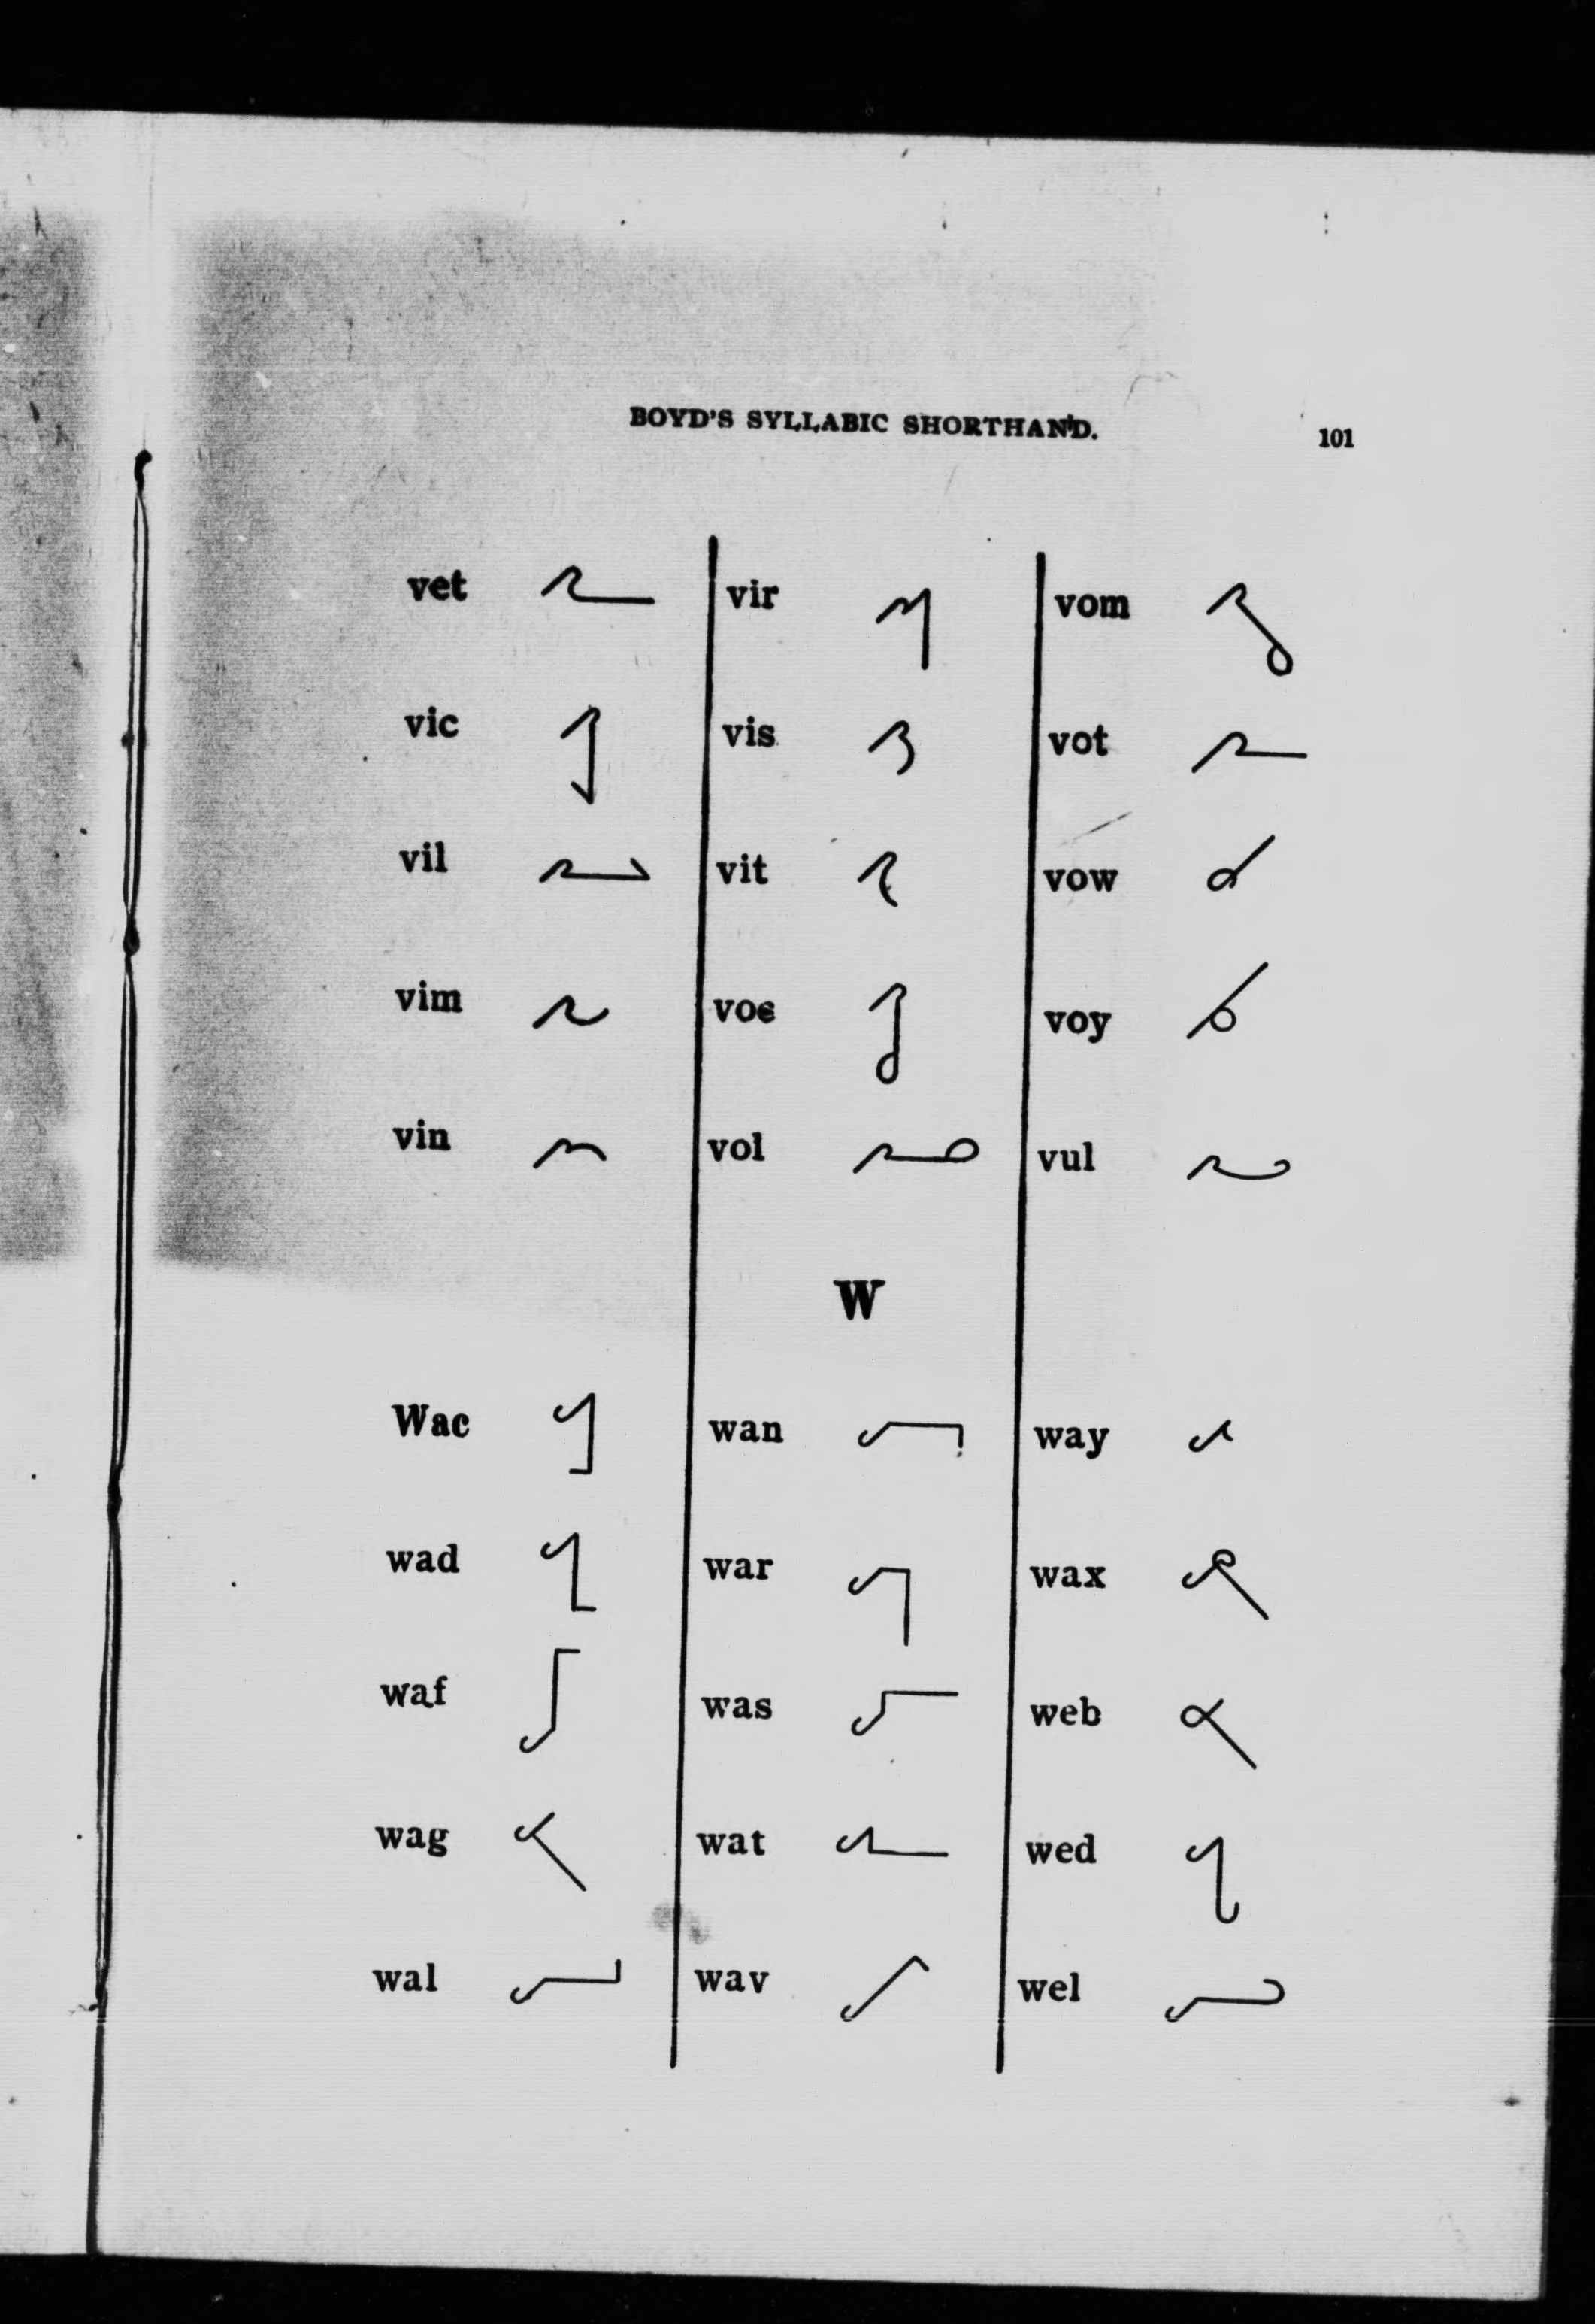 BOYD'S SYLLABIC SHORTHAND. 101
vet vir vom
vic vis vot
vil vit vow
vim voc voy
vin vol vul
W
Wac wan way
wad war wax
waf was web
wag wat wed
wal wav wel